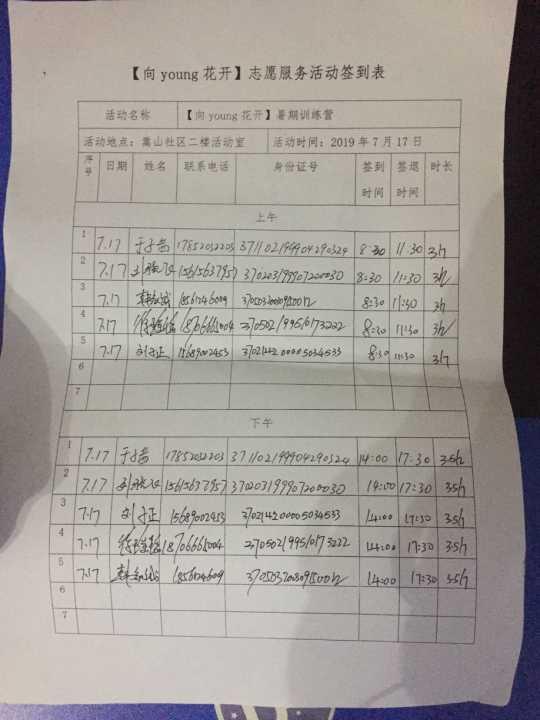 【向young花开】志愿服务活动签到表
活动名称 【向young花开】暑期训练营
活动地点：嵩山社区二楼活动室 活动时间：2019年7月17日
序号 日期 姓名 联系电话 身份证号 签到时间 签退时间 时长
上午
1 7.17 17852032203 371102199904290324 8:30 11:30 3h
2 7.17 15615637957 370203199907200030 8:30 11:30 3h
3 7.17 8:30 11:30 3h
4 7.17 18706665004 370502199510173222 8:30 11:30 3h
5 7.17 刘子正 15689002453 8:30 11:30 3h
6
7
下午
1 7.17 17852032203 371102199904290324 14:00 17:30 3.5h
2 7.17 15615637957 370203199907200030 14:00 17:30 3.5h
3 7.17 刘子正 15689002453 14:00 17:30 3.5h
4 7.17 18706665004 370502199510173222 14:00 17:30 3.5h
5 7.17 14:00 17:30 3.5h
6
7